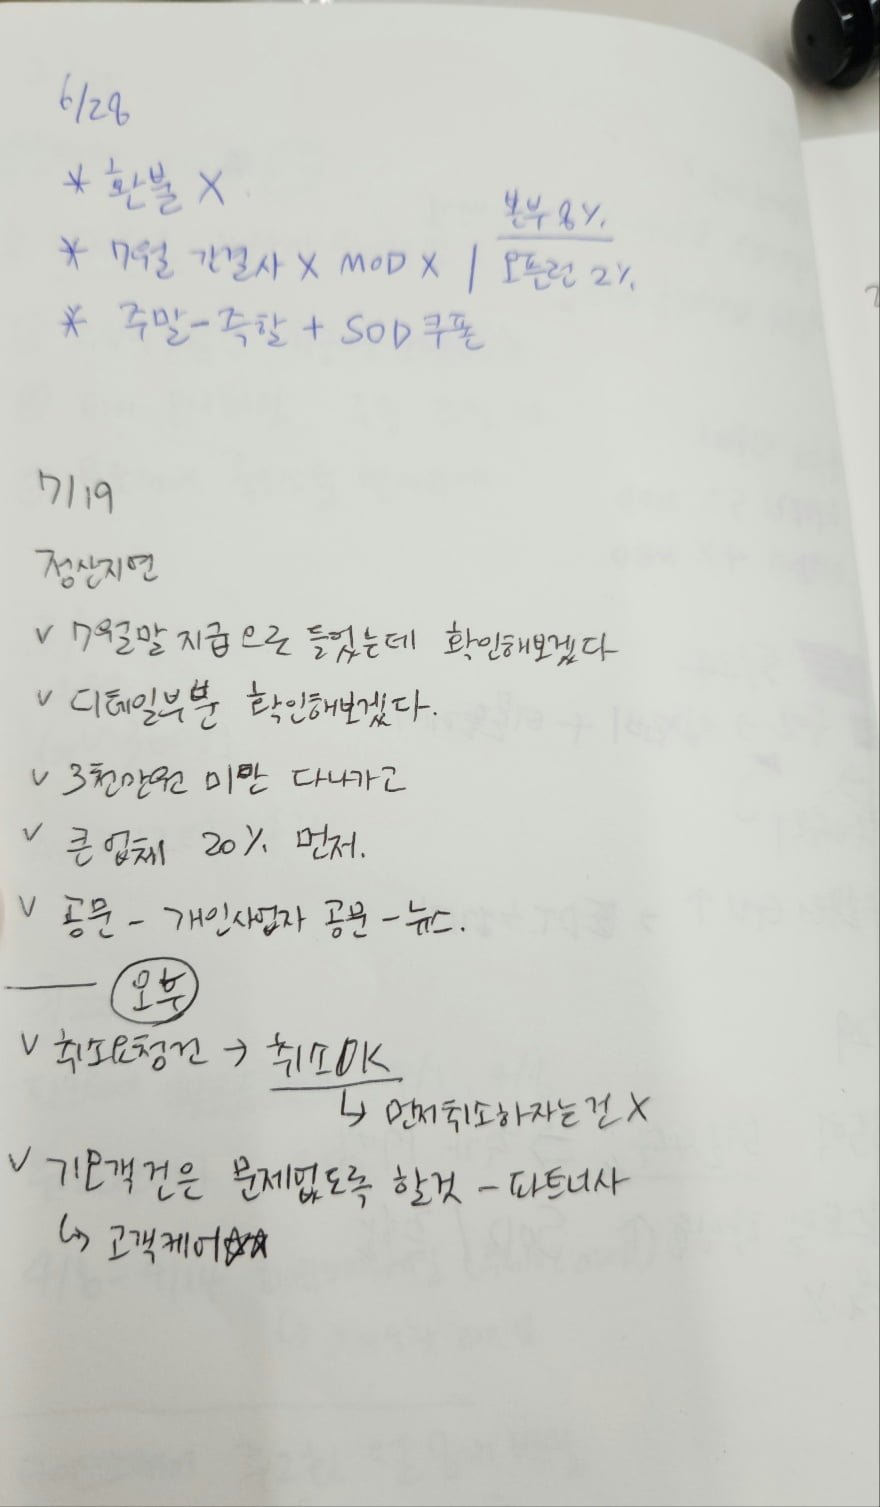 6/28
* 환불 X
* 7월 간결사 X MOD X / 본부 8%
오픈런 2%
* 주말 - 즉할 + SOD 쿠폰
7/19
정산지연
v 7월말 지급으로 들었는데 확인해보겠다
v 디테일부분 확인해보겠다.
v 3천만원 미만 다나가고
v 큰 업체 20% 먼저.
v 공문 - 개인사업자 공문 - 뉴스.
오후
v 취소요청건 → 취소OK
↳ 먼저취소하자는건 X
v 기모객건은 문제없도록 할것 - 파트너사
↳ 고객케어☆☆